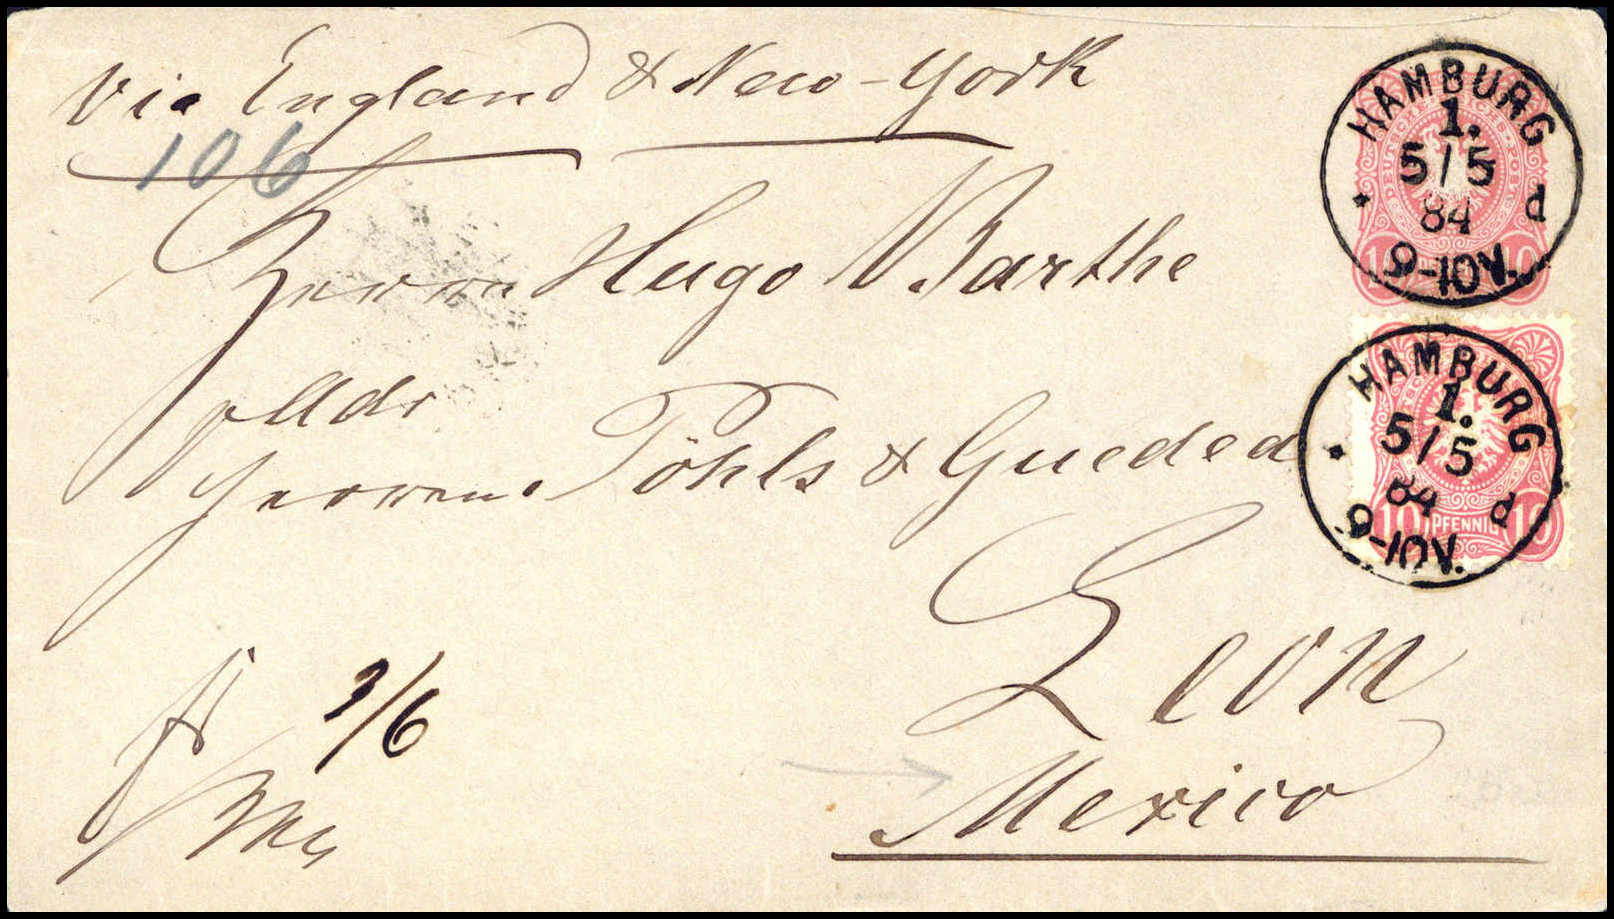 via England & New-York
106
Herrn Hugo Barthe
Adr
Herren Pöhls & Guedea
Leon
Mexico
fr 9/6
HAMBURG
1.
5/5
84
9-10V.
* d
DEUTSCHE REICHS-POST
10 PFENNIG 10
HAMBURG
1.
5/5
84
9-10V.
* d
10 PFENNIG 10